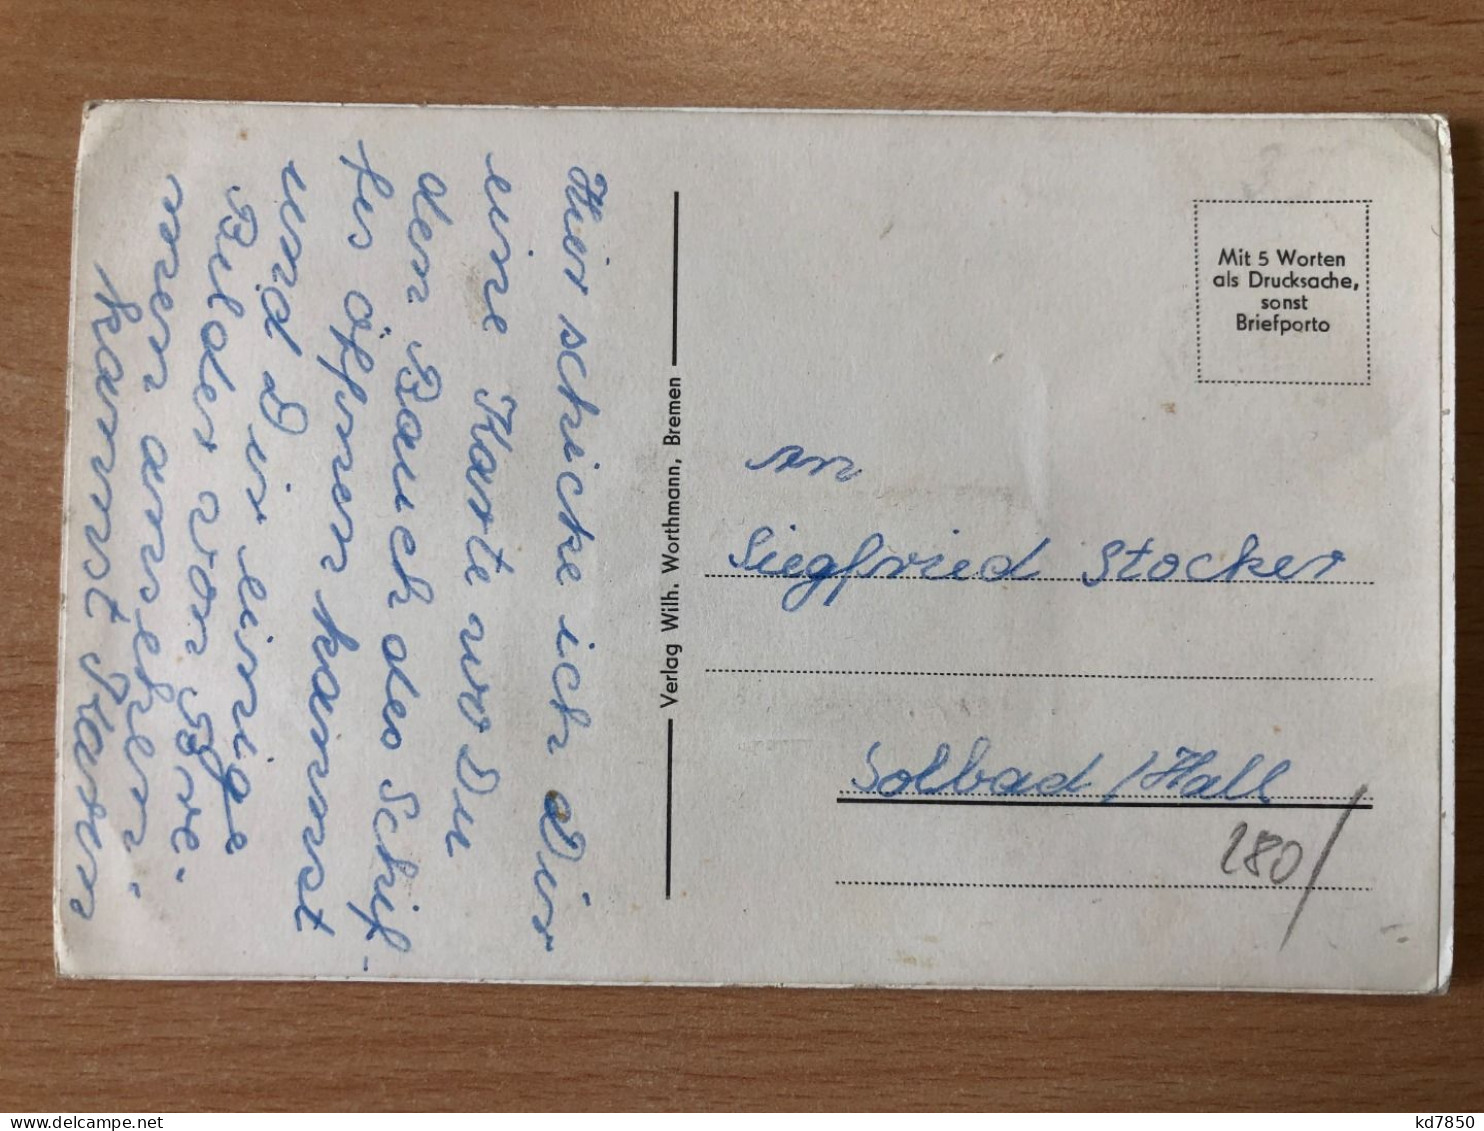 Hier schicke ich Dir
eine Karte wo Du
den Bauch des Schif-
fes öffnen kannst
und Dir einige
Bilder von Bre-
men ansehen
kannst
Verlag Wilh. Worthmann, Bremen
Mit 5 Worten
als Drucksache,
sonst
Briefporto
An
Siegfried Stocker
Solbad / Hall
280/
kd7850